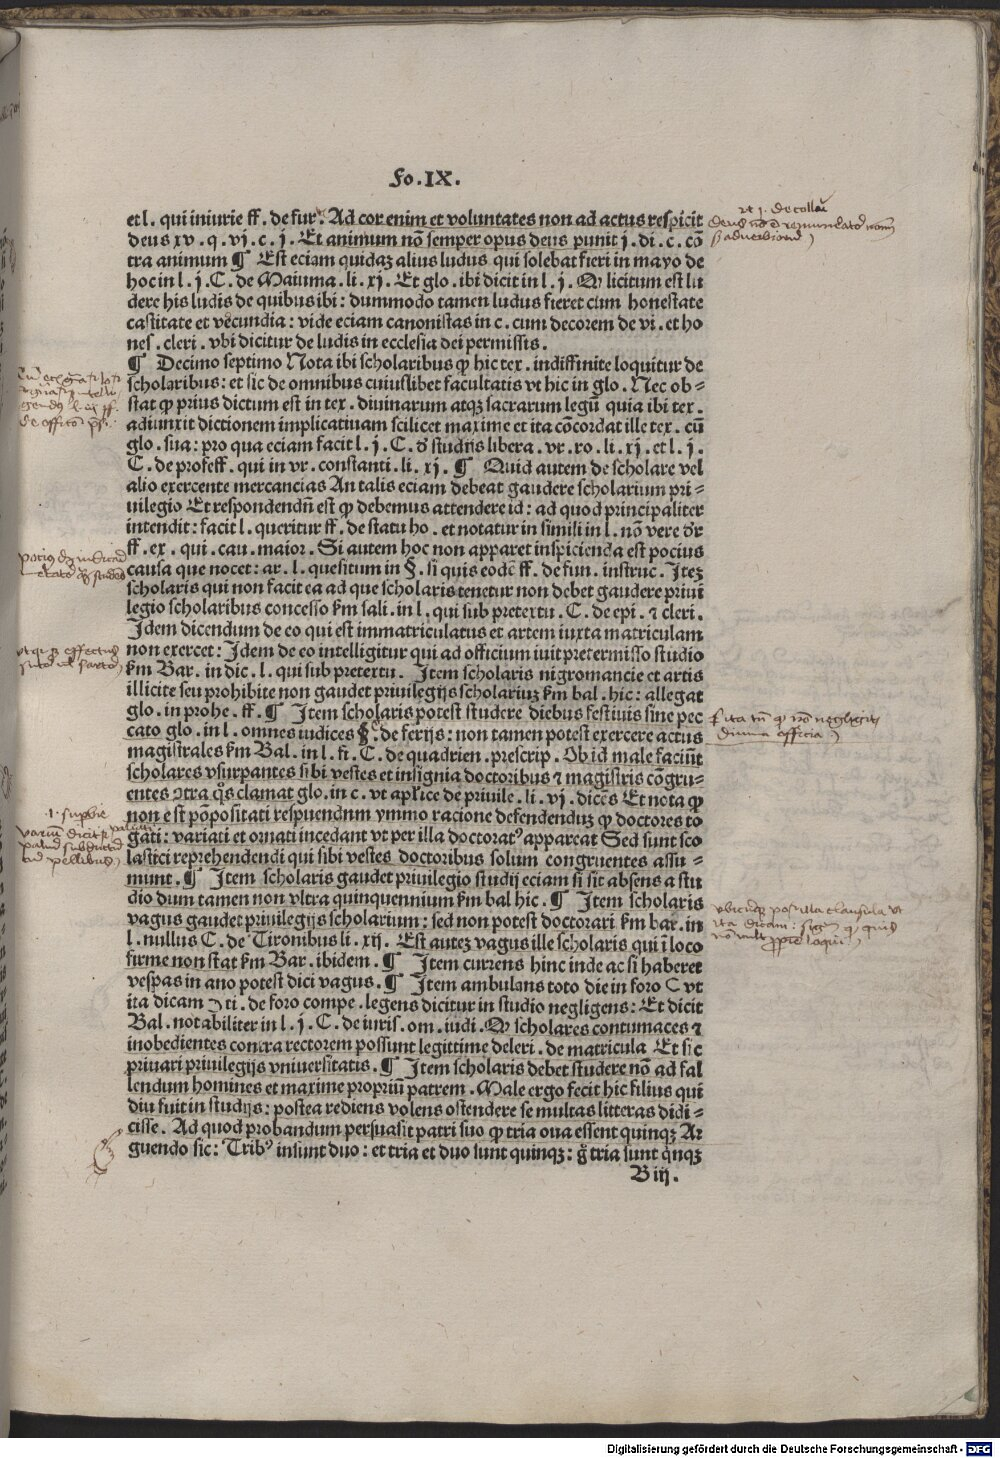 Fo.IX.
et l. qui iniurie ff. de fur. Ad cor enim et voluntates non ad actus respicit
deus xv. q. vj. c. j. Et animum nō semper opus deus punit j. di. c. cō
tra animum ¶ Est eciam quidaʒ alius ludus qui solebat fieri in mayo de
hoc in l. j. C. de Maiuma. li. xj. Et glo. ibi dicit in l. j. Q licitum est lu
dere his ludis de quibus ibi: dummodo tamen ludus fieret cum honestate
castitate et vecundia: vide eciam canonistas in c. cum decorem de vi. et ho
nes. cleri. vbi dicitur de ludis in ecclesia dei permissis.
¶ Decimo septimo Nota ibi scholaribus ꝙ hic tex. indiffinite loquitur de
scholaribus: et sic de omnibus cuiuslibet facultatis vt hic in glo. Nec ob⸗
stat ꝙ prius dictum est in tex. diuinarum atqʒ sacrarum legū quia ibi tex.
adiunxit dictionem implicatiuam scilicet maxime et ita cōcordat ille tex. cū
glo. sua: pro qua eciam facit l. j. C. de studijs libera. vr. ro. li. xj. et l. j.
C. de profess. qui in vr. constanti. li. xj. ¶ Quid autem de scholare vel
alio exercente mercancias An talis eciam debeat gaudere scholarium pri⸗
uilegio Et respondendū est ꝙ debemus attendere id: ad quod principaliter
intendit: facit l. queritur ff. de statu ho. et notatur in simili in l. nō vere dr
ff. ex. qui. cau. maior. Si autem hoc non apparet inspicienda est pocius
causa que nocet: ar. l. quesitum in §. si quis eodē ff. de fun. instruc. Iteʒ
scholaris qui non facit ea ad que scholaris tenetur non debet gaudere priui
legio scholaribus concesso fm sali. in l. qui sub pretextu. C. de epi. ⁊ cleri.
Idem dicendum de eo qui est immatriculatus et artem iuxta matriculam
non exercet: Idem de eo intelligitur qui ad officium iuit pretermisso studio
fm Bar. in dic. l. qui sub pretextu. Item scholaris nigromancie et artis
illicite seu prohibite non gaudet priuilegijs scholariuʒ fm bal. hic: allegat
glo. in prohe. ff. ¶ Item scholaris potest studere diebus festiuis sine pec
cato glo. in l. omnes iudices §. de ferijs: non tamen potest exercere actus
magistrales fm Bal. in l. fi. C. de quadrien. prescrip. Ob id male faciūt
scholares vsurpantes sibi vestes et insignia doctoribus ⁊ magistris cōgru⸗
entes ꝯtra qͦs clamat glo. in c. vt aplice de priuile. li. vj. dicēs Et nota ꝙ
non est pōpositati respuendum ymmo racione defendenduʒ ꝙ doctores to
gati: variati et ornati incedant vt per illa doctoratꝰ appareat Sed sunt sco
lastici reprehendendi qui sibi vestes doctoribus solum congruentes assu⸗
munt. ¶ Item scholaris gaudet priuilegio studij eciam si sit absens a stu
dio dum tamen non vltra quinquennium fm bal hic. ¶ Item scholaris
vagus gaudet priuilegijs scholarium: sed non potest doctorari fm bar. in
l. nullus C. de Tironibus li. xij. Est auteʒ vagus ille scholaris qui ī loco
firme non stat fm Bar. ibidem. ¶ Item currens hinc inde ac si haberet
vespas in ano potest dici vagus. ¶ Item ambulans toto die in foro C vt
ita dicam Ɔ ti. de foro compe. legens dicitur in studio negligens: Et dicit
Bal. notabiliter in l. j. C. de iuris. om. iudi. Q scholares contumaces ⁊
inobedientes contra rectorem possunt legittime deleri. de matricula Et sic
priuari priuilegijs vniuersitatis. ¶ Item scholaris debet studere nō ad fal
lendum homines et maxime propriū patrem. Male ergo fecit hic filius qui
diu fuit in studijs: postea rediens volens ostendere se multas litteras didi⸗
cisse. Ad quod probandum persuasit patri suo ꝙ tria oua essent quinqʒ Ar
guendo sic: Tribꝰ insunt duo: et tria et duo sunt quinqʒ: g̃ tria sunt qͥnqʒ
B iij.
Digitalisierung gefördert durch die Deutsche Forschungsgemeinschaft - DFG